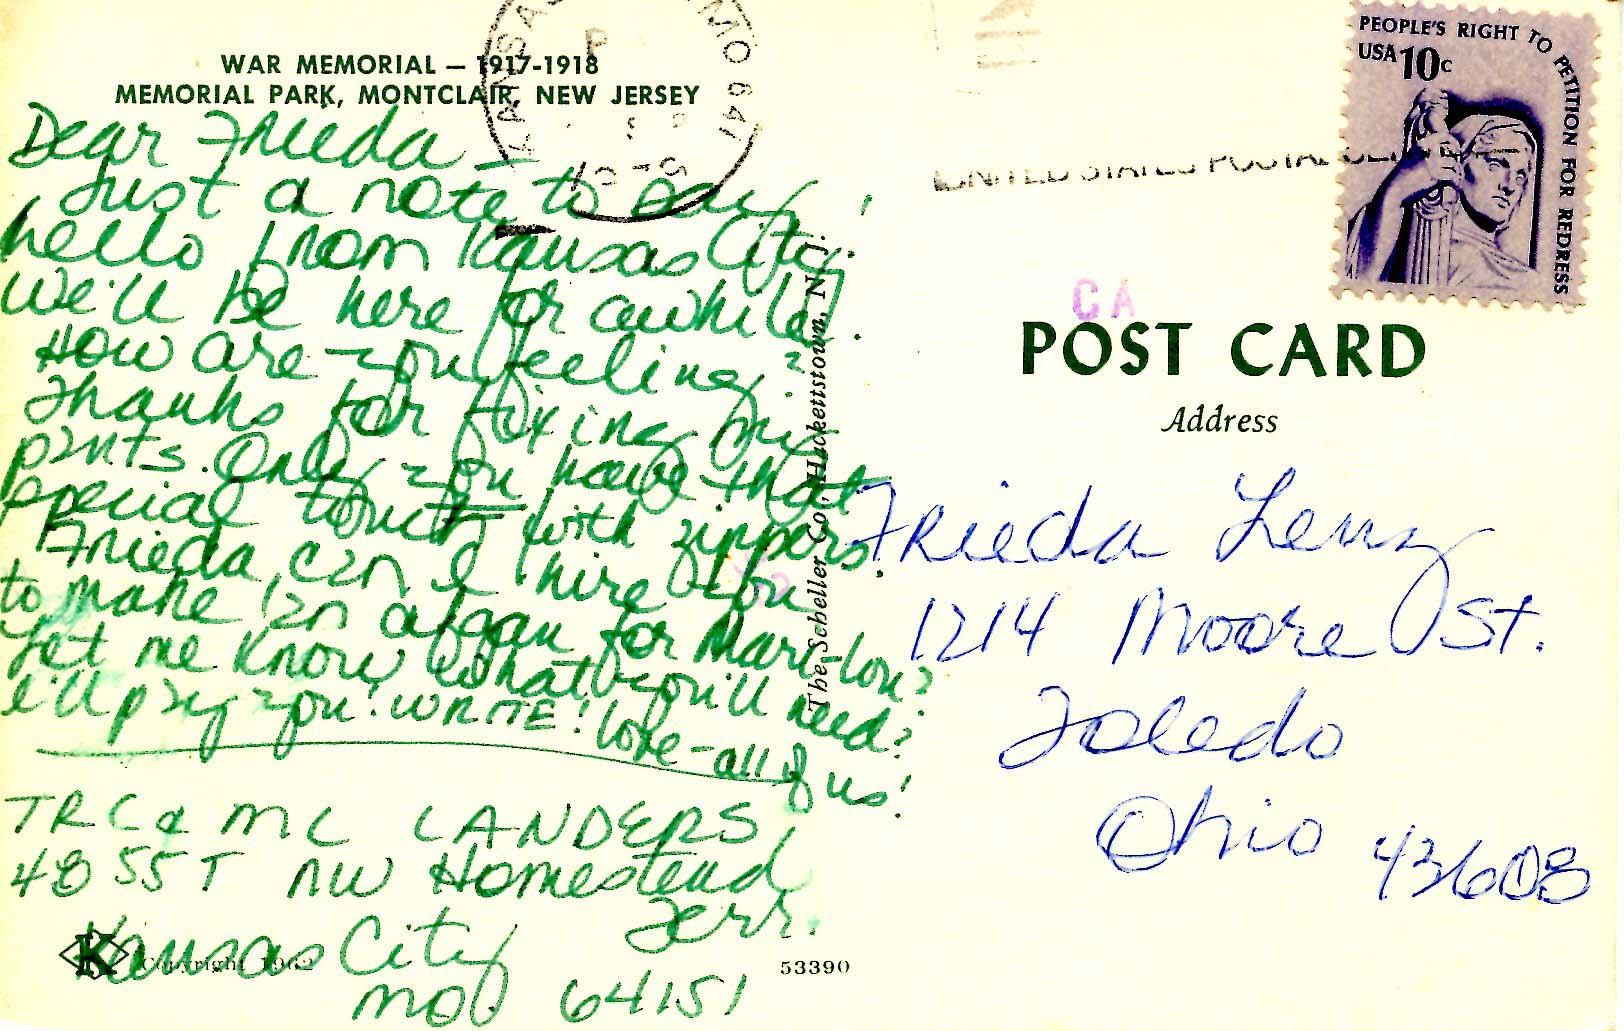 WAR MEMORIAL — 1917-1918
MEMORIAL PARK, MONTCLAIR, NEW JERSEY
Dear Frieda –
Just a note to say
hello from Kansas City.
We'll be here for awhile.
How are you feeling?
Thanks for fixing my
pants. Only you have that
special touch with zippers.
Frieda, can I hire you
to make an afgan for Mari-Lou?
Let me know what you'll need?
I'll pay you! WRITE! Love – all of us!
TRC & MC LANDERS
4855T NW Homestead
Terr.
Kansas City
MO 64151
K
Copyright 1962
53390
The Scheller Co., Hackettstown, N. J.
KANSAS MO 641
UNITED STATES POSTAL
PEOPLE'S RIGHT TO PETITION FOR REDRESS
USA 10c
CA
POST CARD
Address
Frieda Lenz
1214 Moore St.
Toledo
Ohio 43608